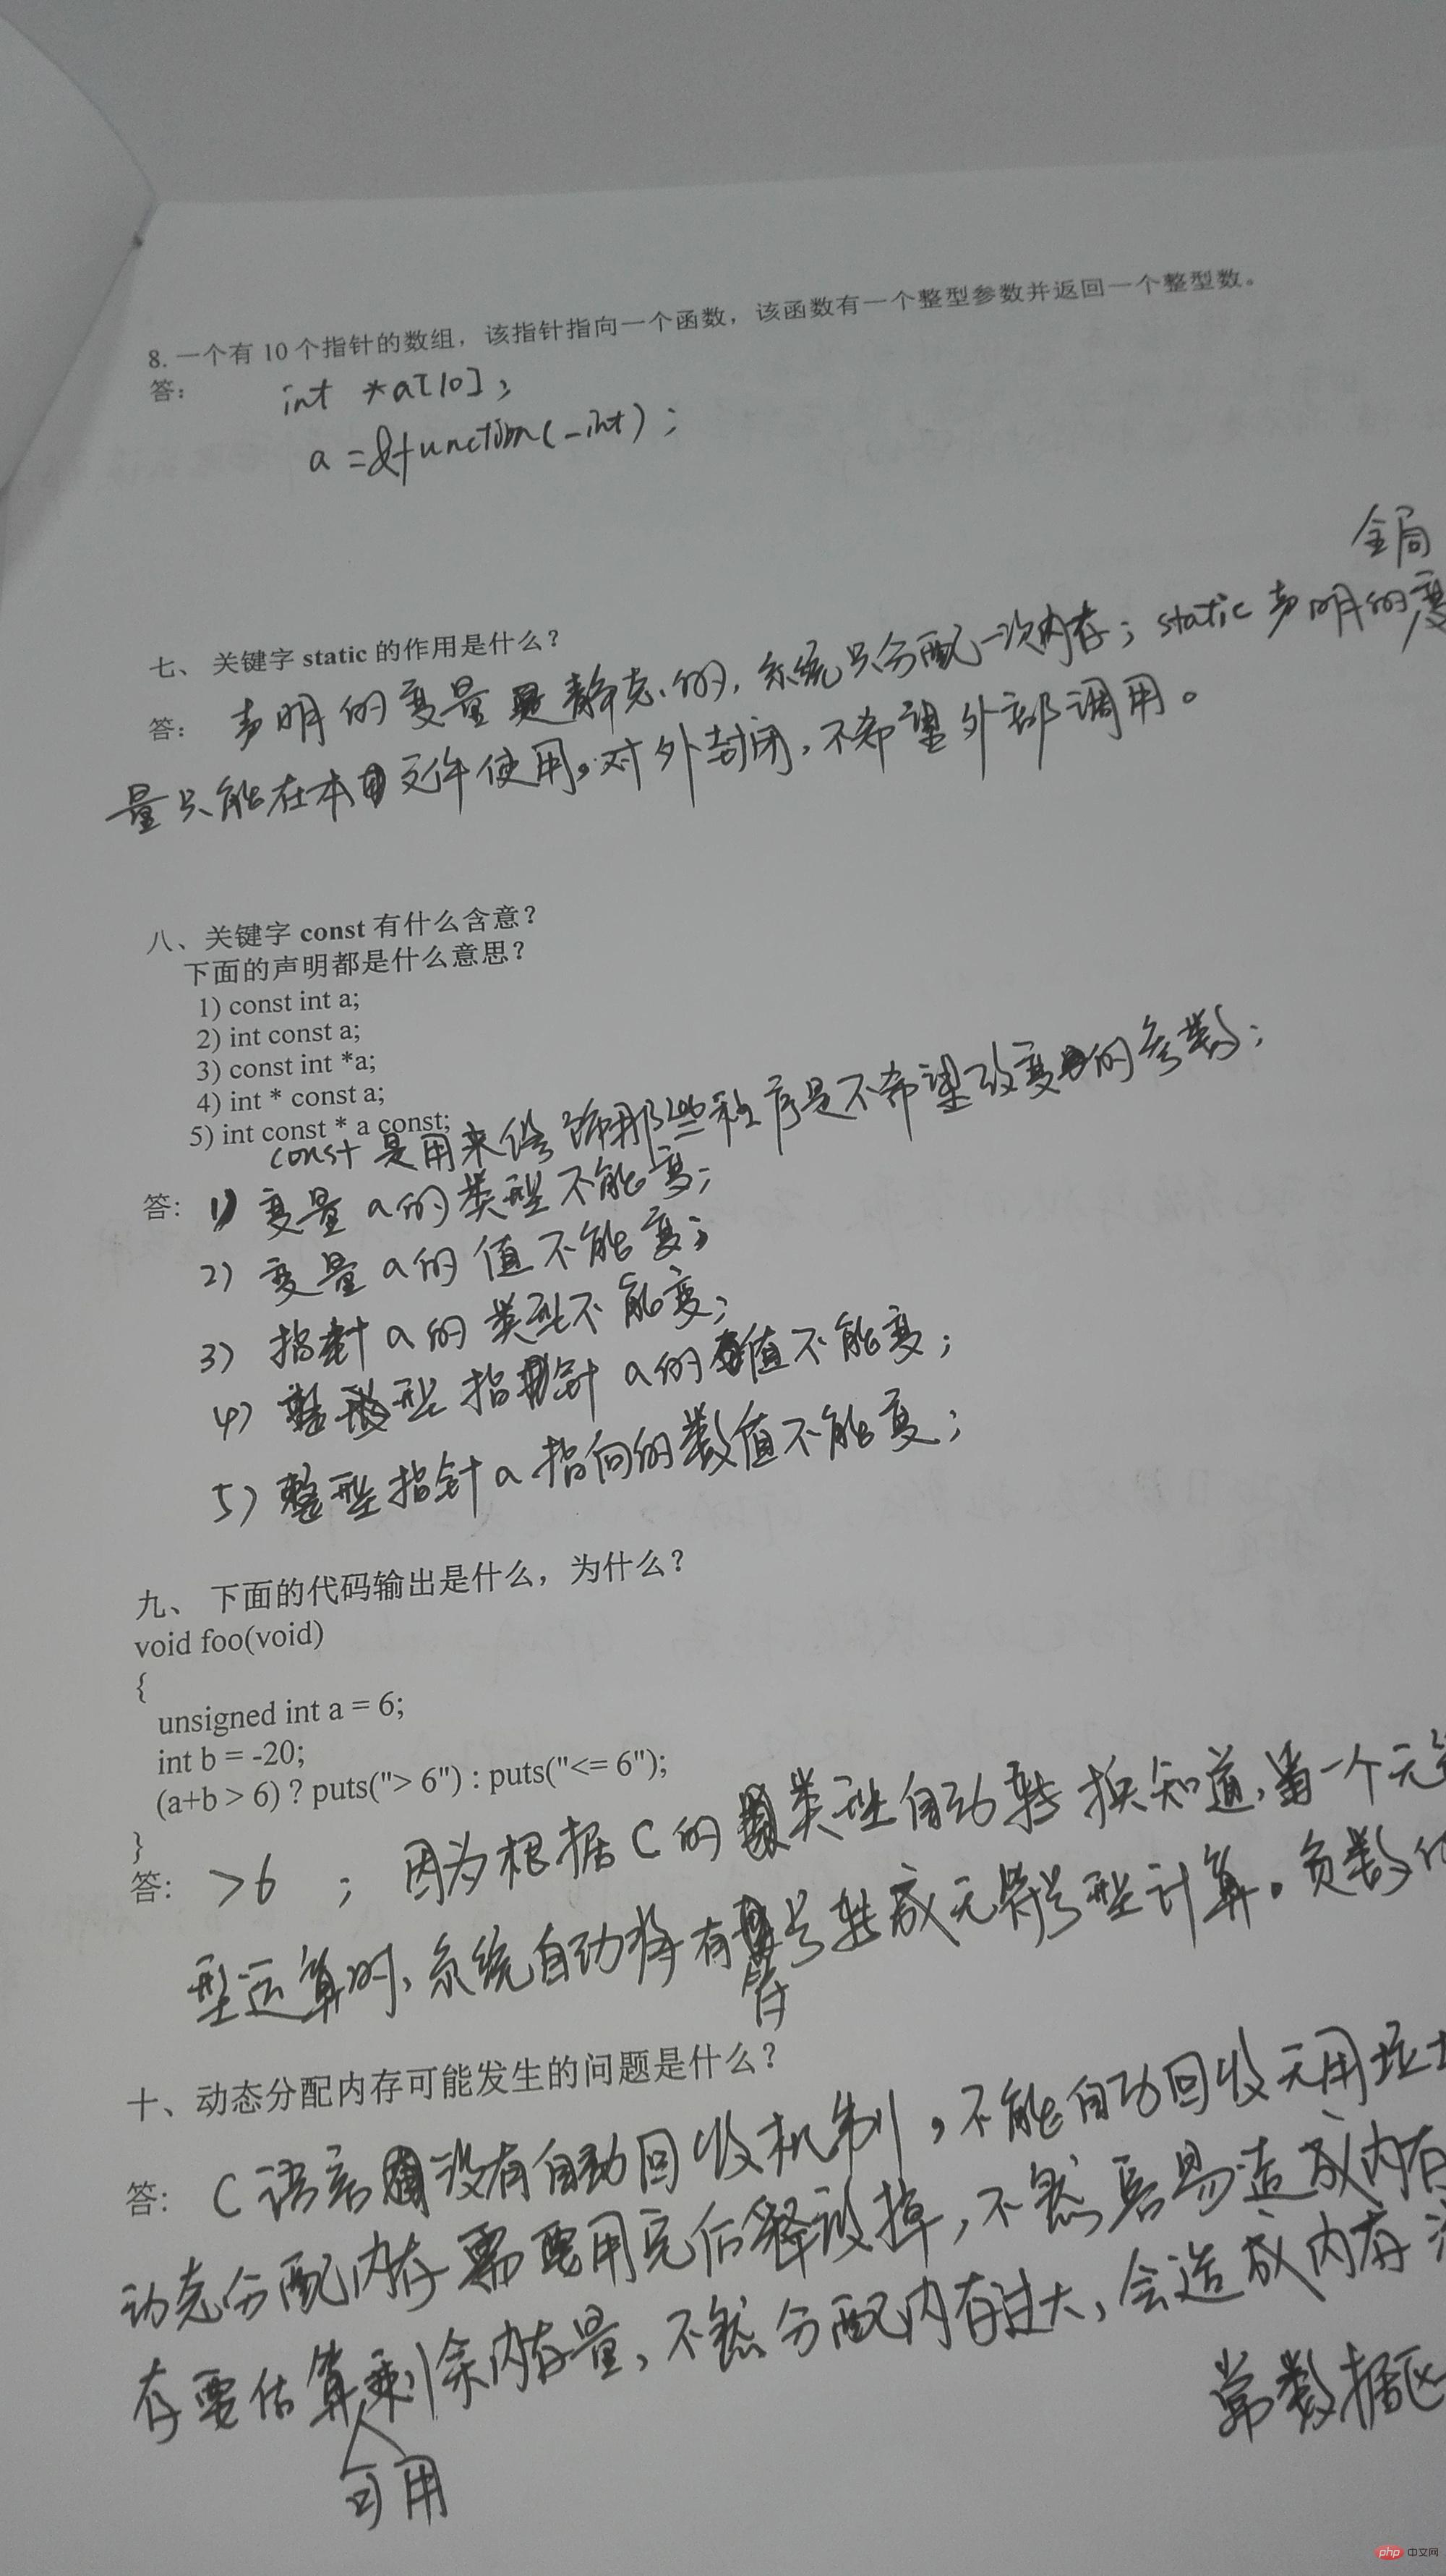 8. 一个有 10 个指针的数组，该指针指向一个函数，该函数有一个整型参数并返回一个整型数。
答：
int *a[10];
a = &function(_int);
全局
七、 关键字 static 的作用是什么？
答： 声明的变量是静态的，系统只分配一次内存；static 声明的变
量只能在本文件使用。对外封闭，不希望外部调用。
八、关键字 const 有什么含意？
下面的声明都是什么意思？
1) const int a;
2) int const a;
3) const int *a;
4) int * const a;
5) int const * a const;
const 是用来修饰那些程序是不希望改变的参数；
答： 1) 变量 a 的类型不能变；
2) 变量 a 的 值不能变；
3) 指针 a 的 类型不能变；
4) 整型 指针 a 的值不能变；
5) 整型指针 a 指向的数值不能变；
九、 下面的代码输出是什么，为什么？
void foo(void)
{
unsigned int a = 6;
int b = -20;
(a+b > 6) ? puts("> 6") : puts("<= 6");
}
答： >6 ； 因为根据 C 的类型自动转换知道，当一个无
型运算时，系统自动将有号转成无符号型计算。负数
符
十、动态分配内存可能发生的问题是什么？
答： C 语言没有自动回收机制，不能自动回收无用垃
动态分配内存需要用完后释放掉，不然容易造成内存
存要估算剩余内存量，不然分配内存过大，会造成内存
可用
常数据区
php 中文网